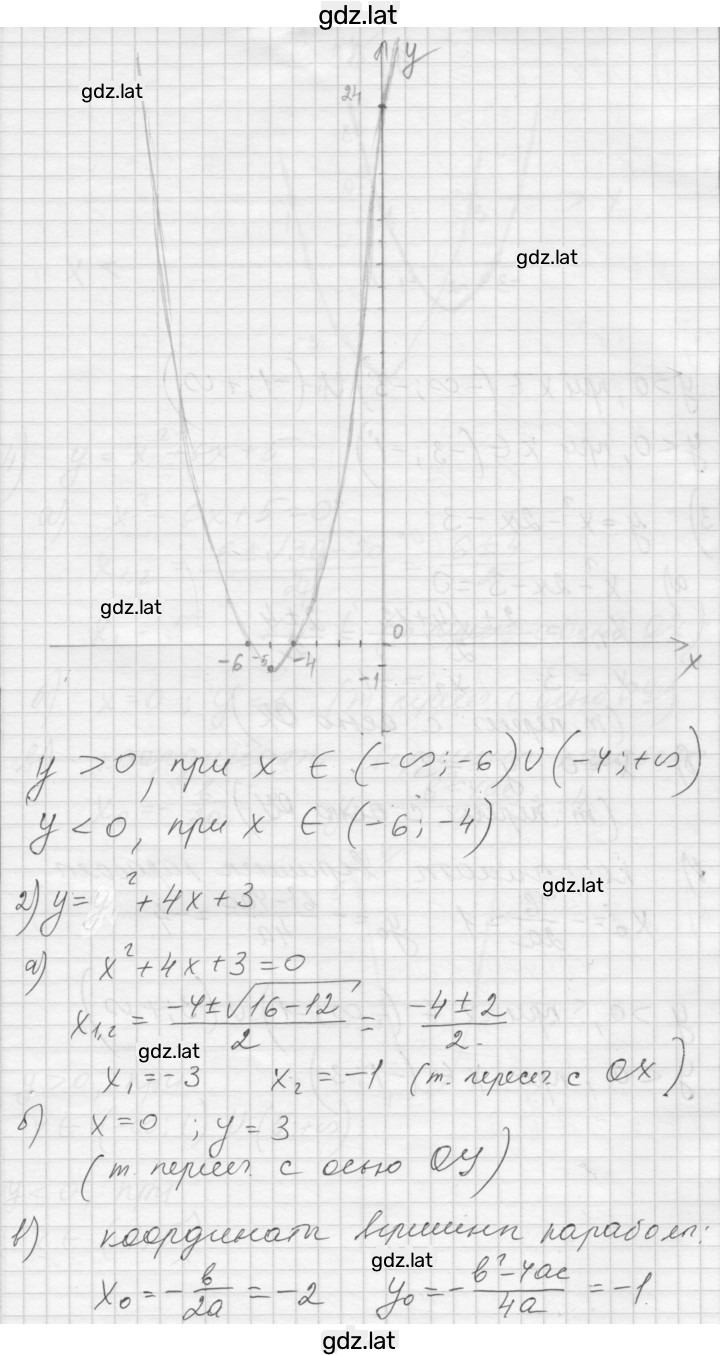 gdz.lat
y
gdz.lat
24
gdz.lat
gdz.lat
0
-6 -5 -4
-1
x
y > 0, при x ∈ (-∞; -6) ∪ (-4; +∞)
y < 0, при x ∈ (-6; -4)
gdz.lat
2) y = x² + 4x + 3
а) x² + 4x + 3 = 0
x₁,₂ = (-4 ± √(16-12))/2 = (-4 ± 2)/2
gdz.lat
x₁ = -3 x₂ = -1 (т. перес. с OX)
б) x = 0 ; y = 3
(т. перес. с осью OY)
в) координаты вершины параболы:
gdz.lat
x₀ = -b/2a = -2 y₀ = -(b² - 4ac)/4a = -1
gdz.lat